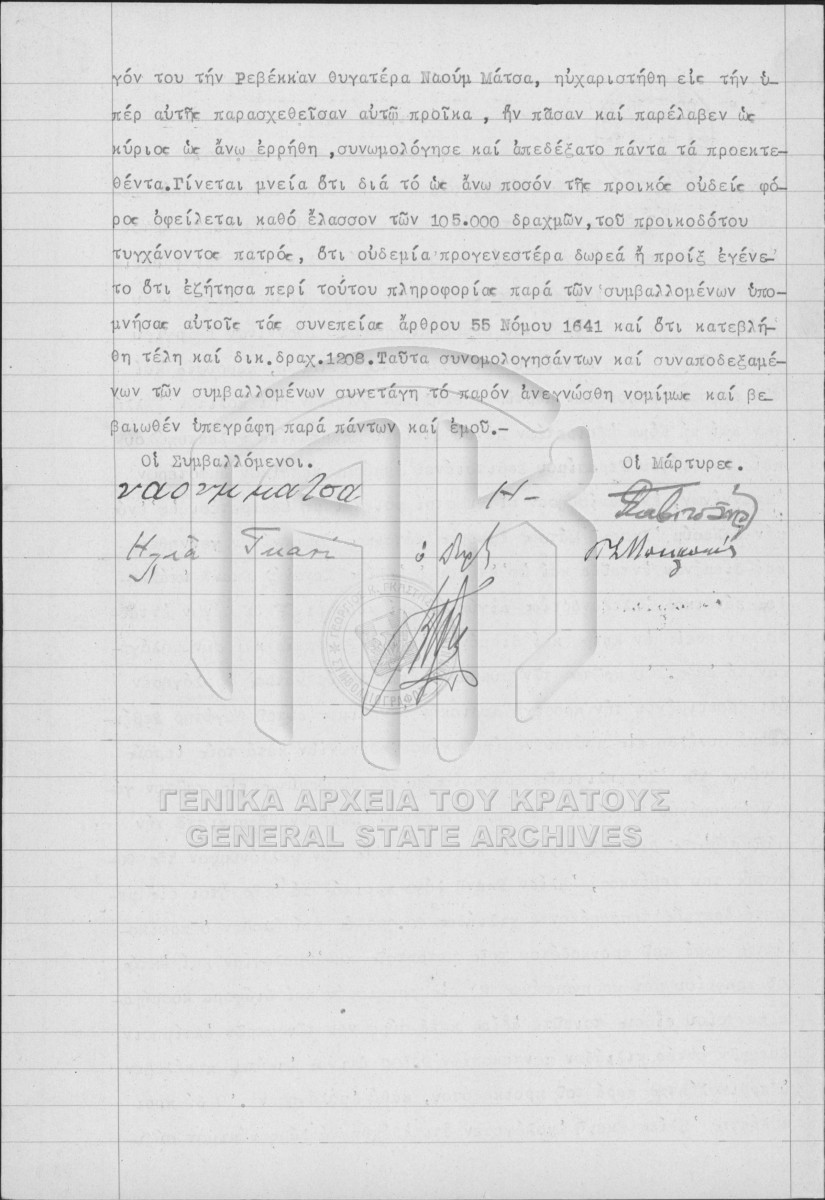 γόν του τήν Ρεβέκκαν θυγατέρα Ναούμ Μάτσα, ηὐχαριστήθη εἰς τήν ὑ-
πέρ αὐτῆς παρασχεθεῖσαν αὐτῷ προῖκα , ἥν πᾶσαν καί παρέλαβεν ὡς
κύριος ὡς ἄνω ἐρρήθη ,συνωμολόγησε καί ἀπεδέξατο πάντα τά προεκτε-
θέντα.Γίνεται μνεία ὅτι διά τό ὡς ἄνω ποσόν τῆς προικός οὐδείς φό-
ρος ὀφείλεται καθό ἔλασσον τῶν 105.000 δραχμῶν,τοῦ προικοδότου
τυγχάνοντος πατρός, ὅτι οὐδεμία προγενεστέρα δωρεά ἤ προίξ ἐγένε-
το ὅτι ἐζήτησα περί τούτου πληροφορίας παρά τῶν συμβαλλομένων ὑπο-
μνήσας αὐτοῖς τάς συνεπείας ἄρθρου 55 Νόμου 1641 καί ὅτι κατεβλή-
θη τέλη καί δικ.δραχ.1208.Ταῦτα συνομολογησάντων καί συναποδεξαμέ-
νων τῶν συμβαλλομένων συνετάγη τό παρόν ἀνεγνώσθη νομίμως καί βε-
βαιωθέν ὑπεγράφη παρά πάντων καί ἐμοῦ.-
Οἱ Συμβαλλόμενοι. Οἱ Μάρτυρες.
ναουμ ματσα
Ηλιᾶ
ΓΕΝΙΚΑ ΑΡΧΕΙΑ ΤΟΥ ΚΡΑΤΟΥΣ
GENERAL STATE ARCHIVES